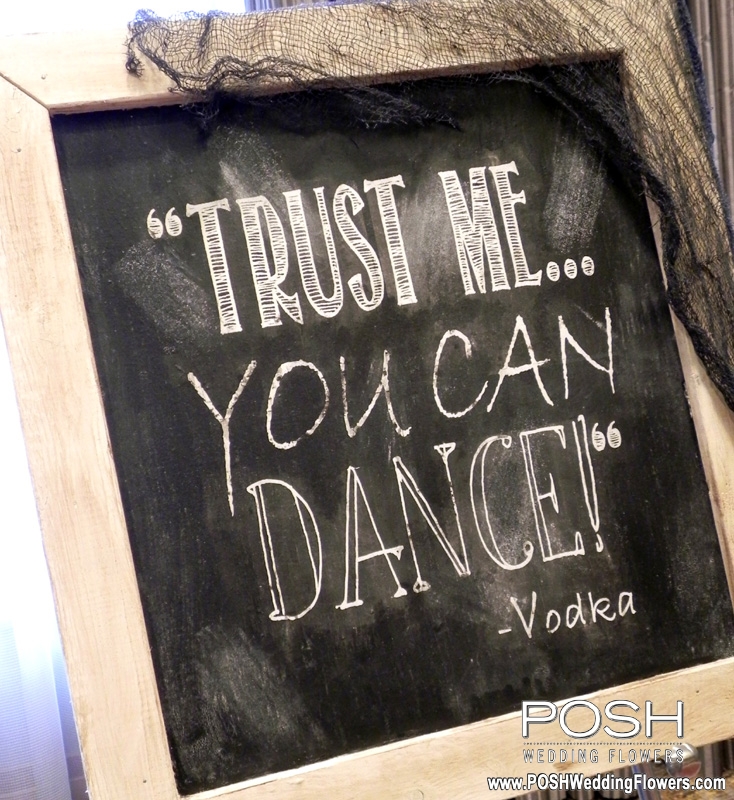 “TRUST ME...
YOU CAN
DANCE!“
-Vodka
POSH
WEDDING FLOWERS
www.POSHWeddingFlowers.com